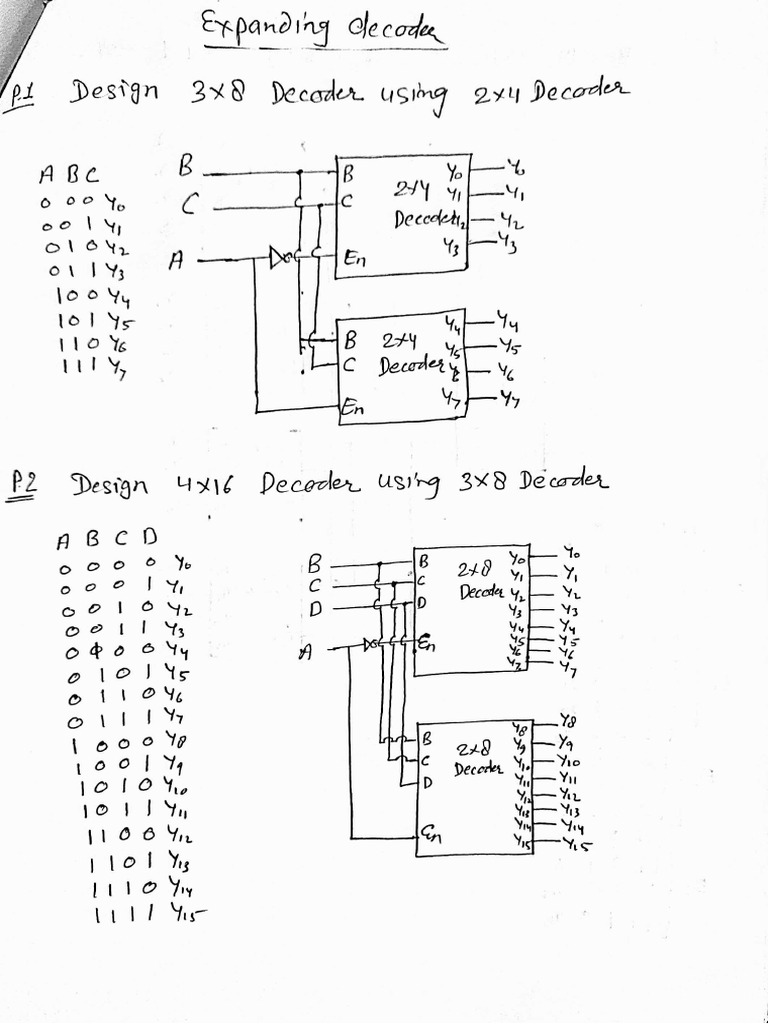 Expanding decoder
P.1 Design 3x8 Decoder using 2x4 Decoder
A B C
0 0 0 Y0
0 0 1 Y1
0 1 0 Y2
0 1 1 Y3
1 0 0 Y4
1 0 1 Y5
1 1 0 Y6
1 1 1 Y7
B
C
A
B
C
En
2x4
Decoder
Y0
Y1
Y2
Y3
Y0
Y1
Y2
Y3
B
C
En
2x4
Decoder
Y4
Y5
Y6
Y7
Y4
Y5
Y6
Y7
P.2 Design 4x16 Decoder using 3x8 Decoder
A B C D
0 0 0 0 Y0
0 0 0 1 Y1
0 0 1 0 Y2
0 0 1 1 Y3
0 1 0 0 Y4
0 1 0 1 Y5
0 1 1 0 Y6
0 1 1 1 Y7
1 0 0 0 Y8
1 0 0 1 Y9
1 0 1 0 Y10
1 0 1 1 Y11
1 1 0 0 Y12
1 1 0 1 Y13
1 1 1 0 Y14
1 1 1 1 Y15
B
C
D
A
B
C
D
En
2x8
Decoder
Y0
Y1
Y2
Y3
Y4
Y5
Y6
Y7
Y0
Y1
Y2
Y3
Y4
Y5
Y6
Y7
B
C
D
En
2x8
Decoder
Y8
Y9
Y10
Y11
Y12
Y13
Y14
Y15
Y8
Y9
Y10
Y11
Y12
Y13
Y14
Y15